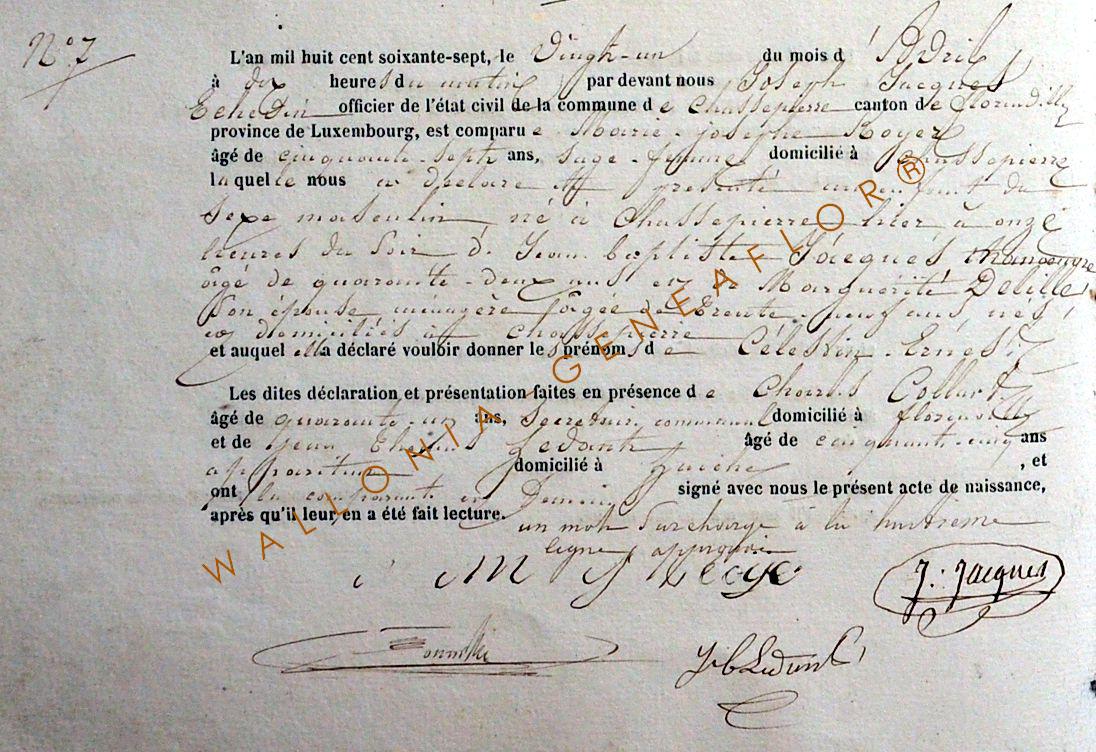 N° 7
L'an mil huit cent soixante-sept, le Vingt-un du mois d'Avril
à dix heures du matin par devant nous Joseph Jacques
Echevin officier de l'état civil de la commune de Chassepierre canton de Florenville
province de Luxembourg, est comparue Marie-Josephe Royer
âgé de cinquante-sept ans, sage-femme domicilié à Chassepierre
laquelle nous a déclaré et présenté un enfant du
sexe masculin né à Chassepierre hier à onze
heures du soir de Jean baptiste Jacques
âgé de quarante-deux ans et de Marguérite Delille
son épouse ménagère âgée de trente-neuf ans, nés
et domiciliés à Chassepierre
et auquel elle a déclaré vouloir donner les prénoms de Célestin-Ernest
Les dites déclaration et présentation faites en présence de Charles Collard
âgé de quarante-un ans, Secrétaire communal domicilié à florenville
et de Jean Ledant âgé de cinquante-cinq ans
appariteur domicilié à , et
ont la comparante et témoins signé avec nous le présent acte de naissance,
après qu'il leur en a été fait lecture. un mot surchargé à la huitième
ligne approuvé
M J Roye
J. Jacques
Ledant
WALLONIA GENEAFLOR®